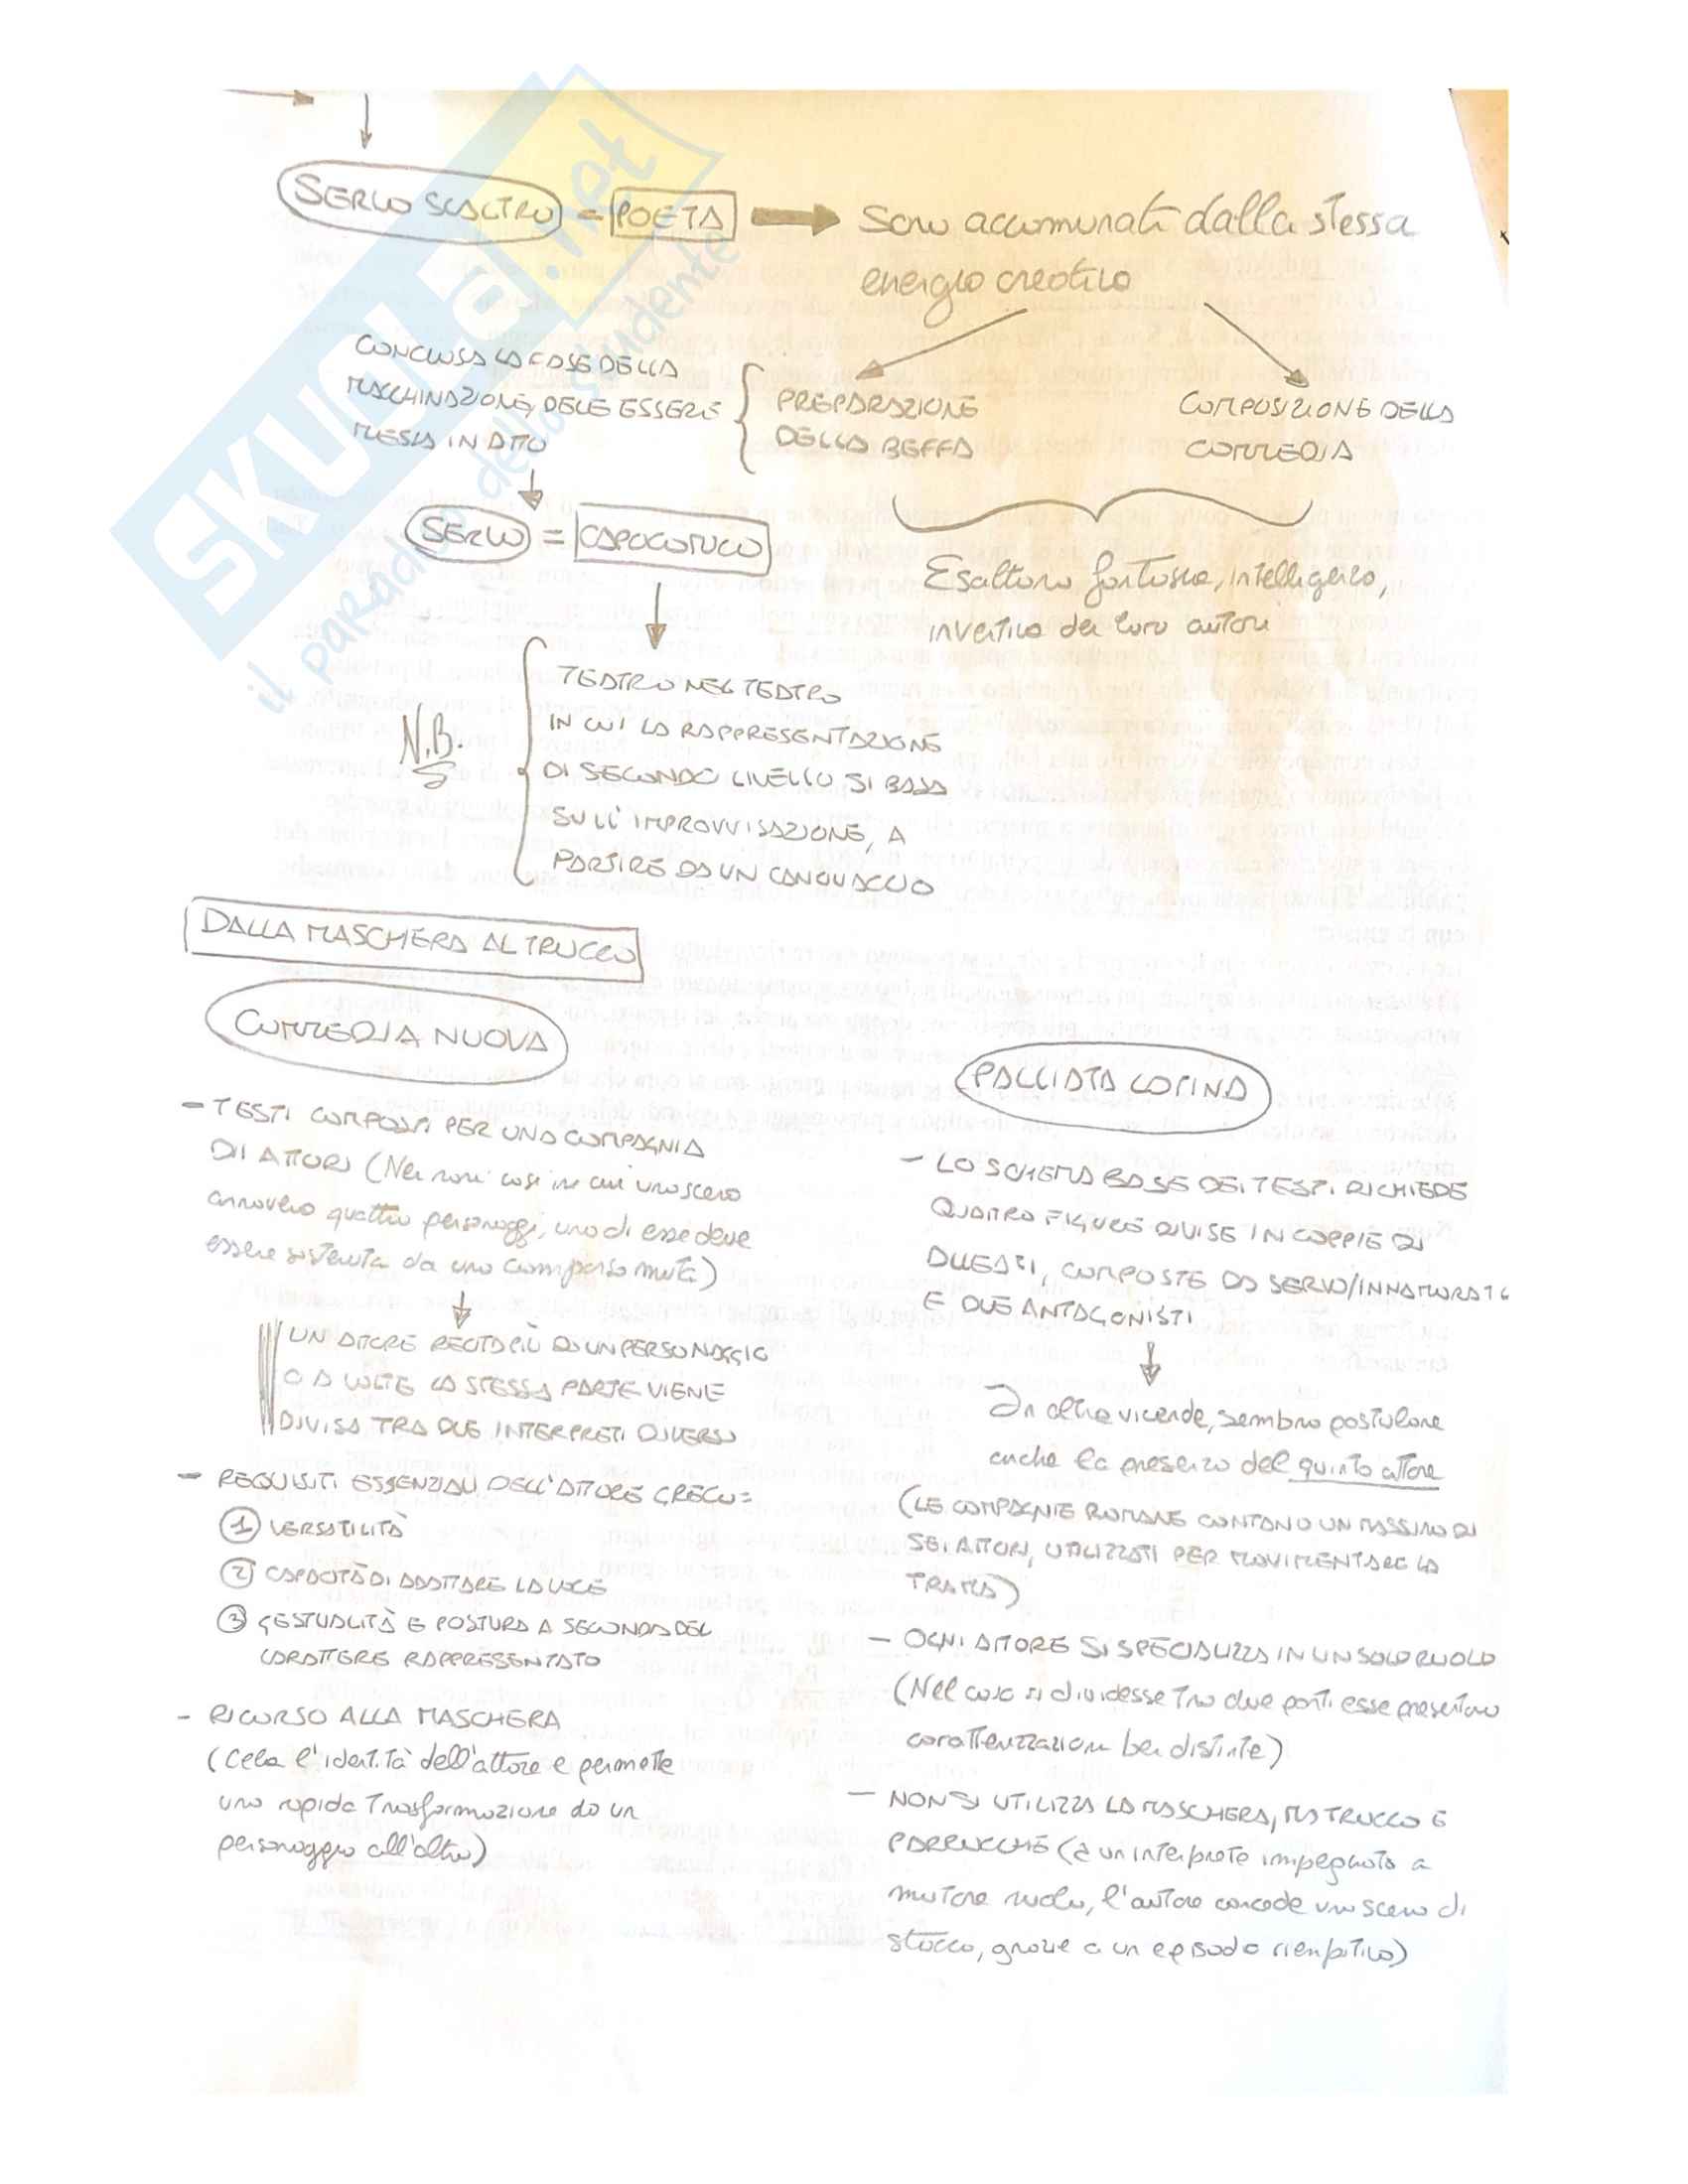 SERVO SCALTRO = POETA → Sono accomunati dalla stessa
energia creativa
CONCLUSA LA FASE DELLA
MACCHINAZIONE, DEVE ESSERE
MESSA IN ATTO
PREPARAZIONE
DELLA BEFFA
COMPOSIZIONE DELLA
COMMEDIA
SERVO = CAPOCOMICO
Esaltano fantasia, intelligenza,
inventiva dei loro autori
N.B.
TEATRO NEL TEATRO
IN CUI LA RAPPRESENTAZIONE
DI SECONDO LIVELLO SI BASA
SULL'IMPROVVISAZIONE, A
PARTIRE DA UN CANOVACCIO
DALLA MASCHERA AL TRUCCO
COMMEDIA NUOVA
- TESTI COMPOSTI PER UNA COMPAGNIA
DI ATTORI (Nei rari casi in cui una scena
annovera quattro personaggi, una di esse deve
essere sostenuta da una comparsa muta)
UN ATTORE RECITA PIÙ DI UN PERSONAGGIO
O A VOLTE LA STESSA PARTE VIENE
DIVISA TRA DUE INTERPRETI DIVERSI
- REQUISITI ESSENZIALI DELL'ATTORE GRECO:
1 VERSATILITÀ
2 CAPACITÀ DI ADATTARE LA VOCE
3 GESTUALITÀ E POSTURA A SECONDA DEL
CARATTERE RAPPRESENTATO
- RICORSO ALLA MASCHERA
(Cela l'identità dell'attore e permette
una rapida trasformazione da un
personaggio all'altro)
PALLIATA LATINA
- LO SCHEMA BASE DEI TESTI RICHIEDE
QUATTRO FIGURE DIVISE IN COPPIE DI
DUE ATTORI, COMPOSTE DA SERVO/INNAMORATO
E DUE ANTAGONISTI
In altre vicende, sembra postulare
anche la presenza del quinto attore
(LE COMPAGNIE ROMANE CONTANO UN MASSIMO DI
SEI ATTORI, UTILIZZATI PER MOVIMENTARE LA
TRAMA)
- OGNI ATTORE SI SPECIALIZZA IN UN SOLO RUOLO
(Nel caso si dividesse tra due parti esse presentano
caratterizzazioni ben distinte)
- NON SI UTILIZZA LA MASCHERA, MA TRUCCO E
PARRUCCHE (a un interprete impegnato a
mutare ruolo, l'autore concede una scena di
stacco, grazie a un episodio riempitivo)
SKUOLA.net
il paradiso dello studente